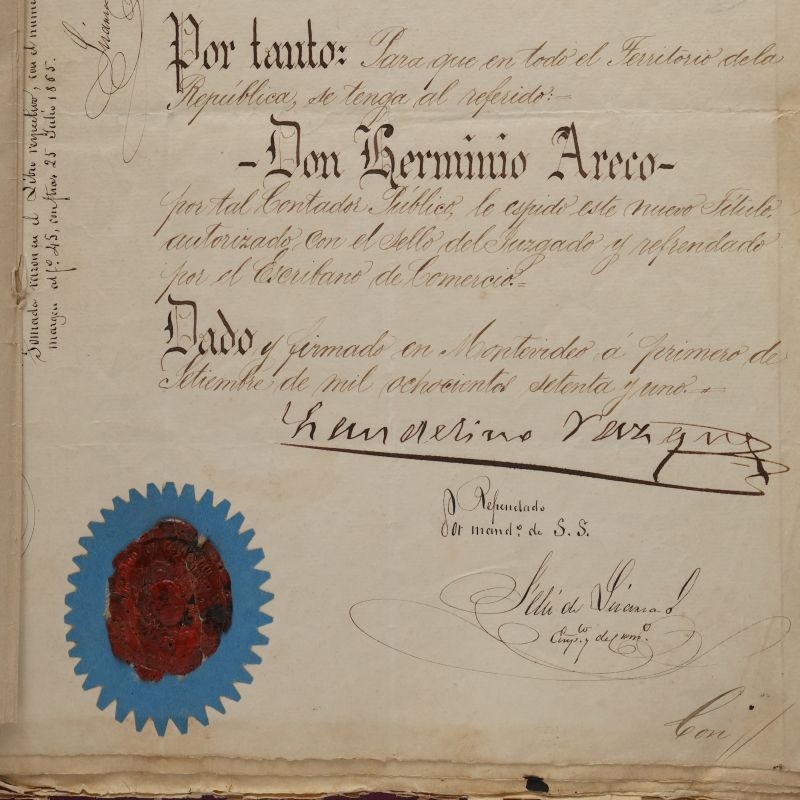 Por tanto: Para que en todo el Territorio de la
República, se tenga al referido:=
-Don Herminio Areco-
por tal Contador Público, le espido este nuevo Título
autorizado con el Sello del Juzgado y refrendado
por el Escribano de Comercio.=
Dado y firmado en Montevideo á primero de
Setiembre de mil ochocientos setenta y uno.=
Refrendado
Por mandº. de S. S.
de
Con //
Tomada razon en el Libro respectivo, con el num
margen al fº. 45,
25 Julio 1865.